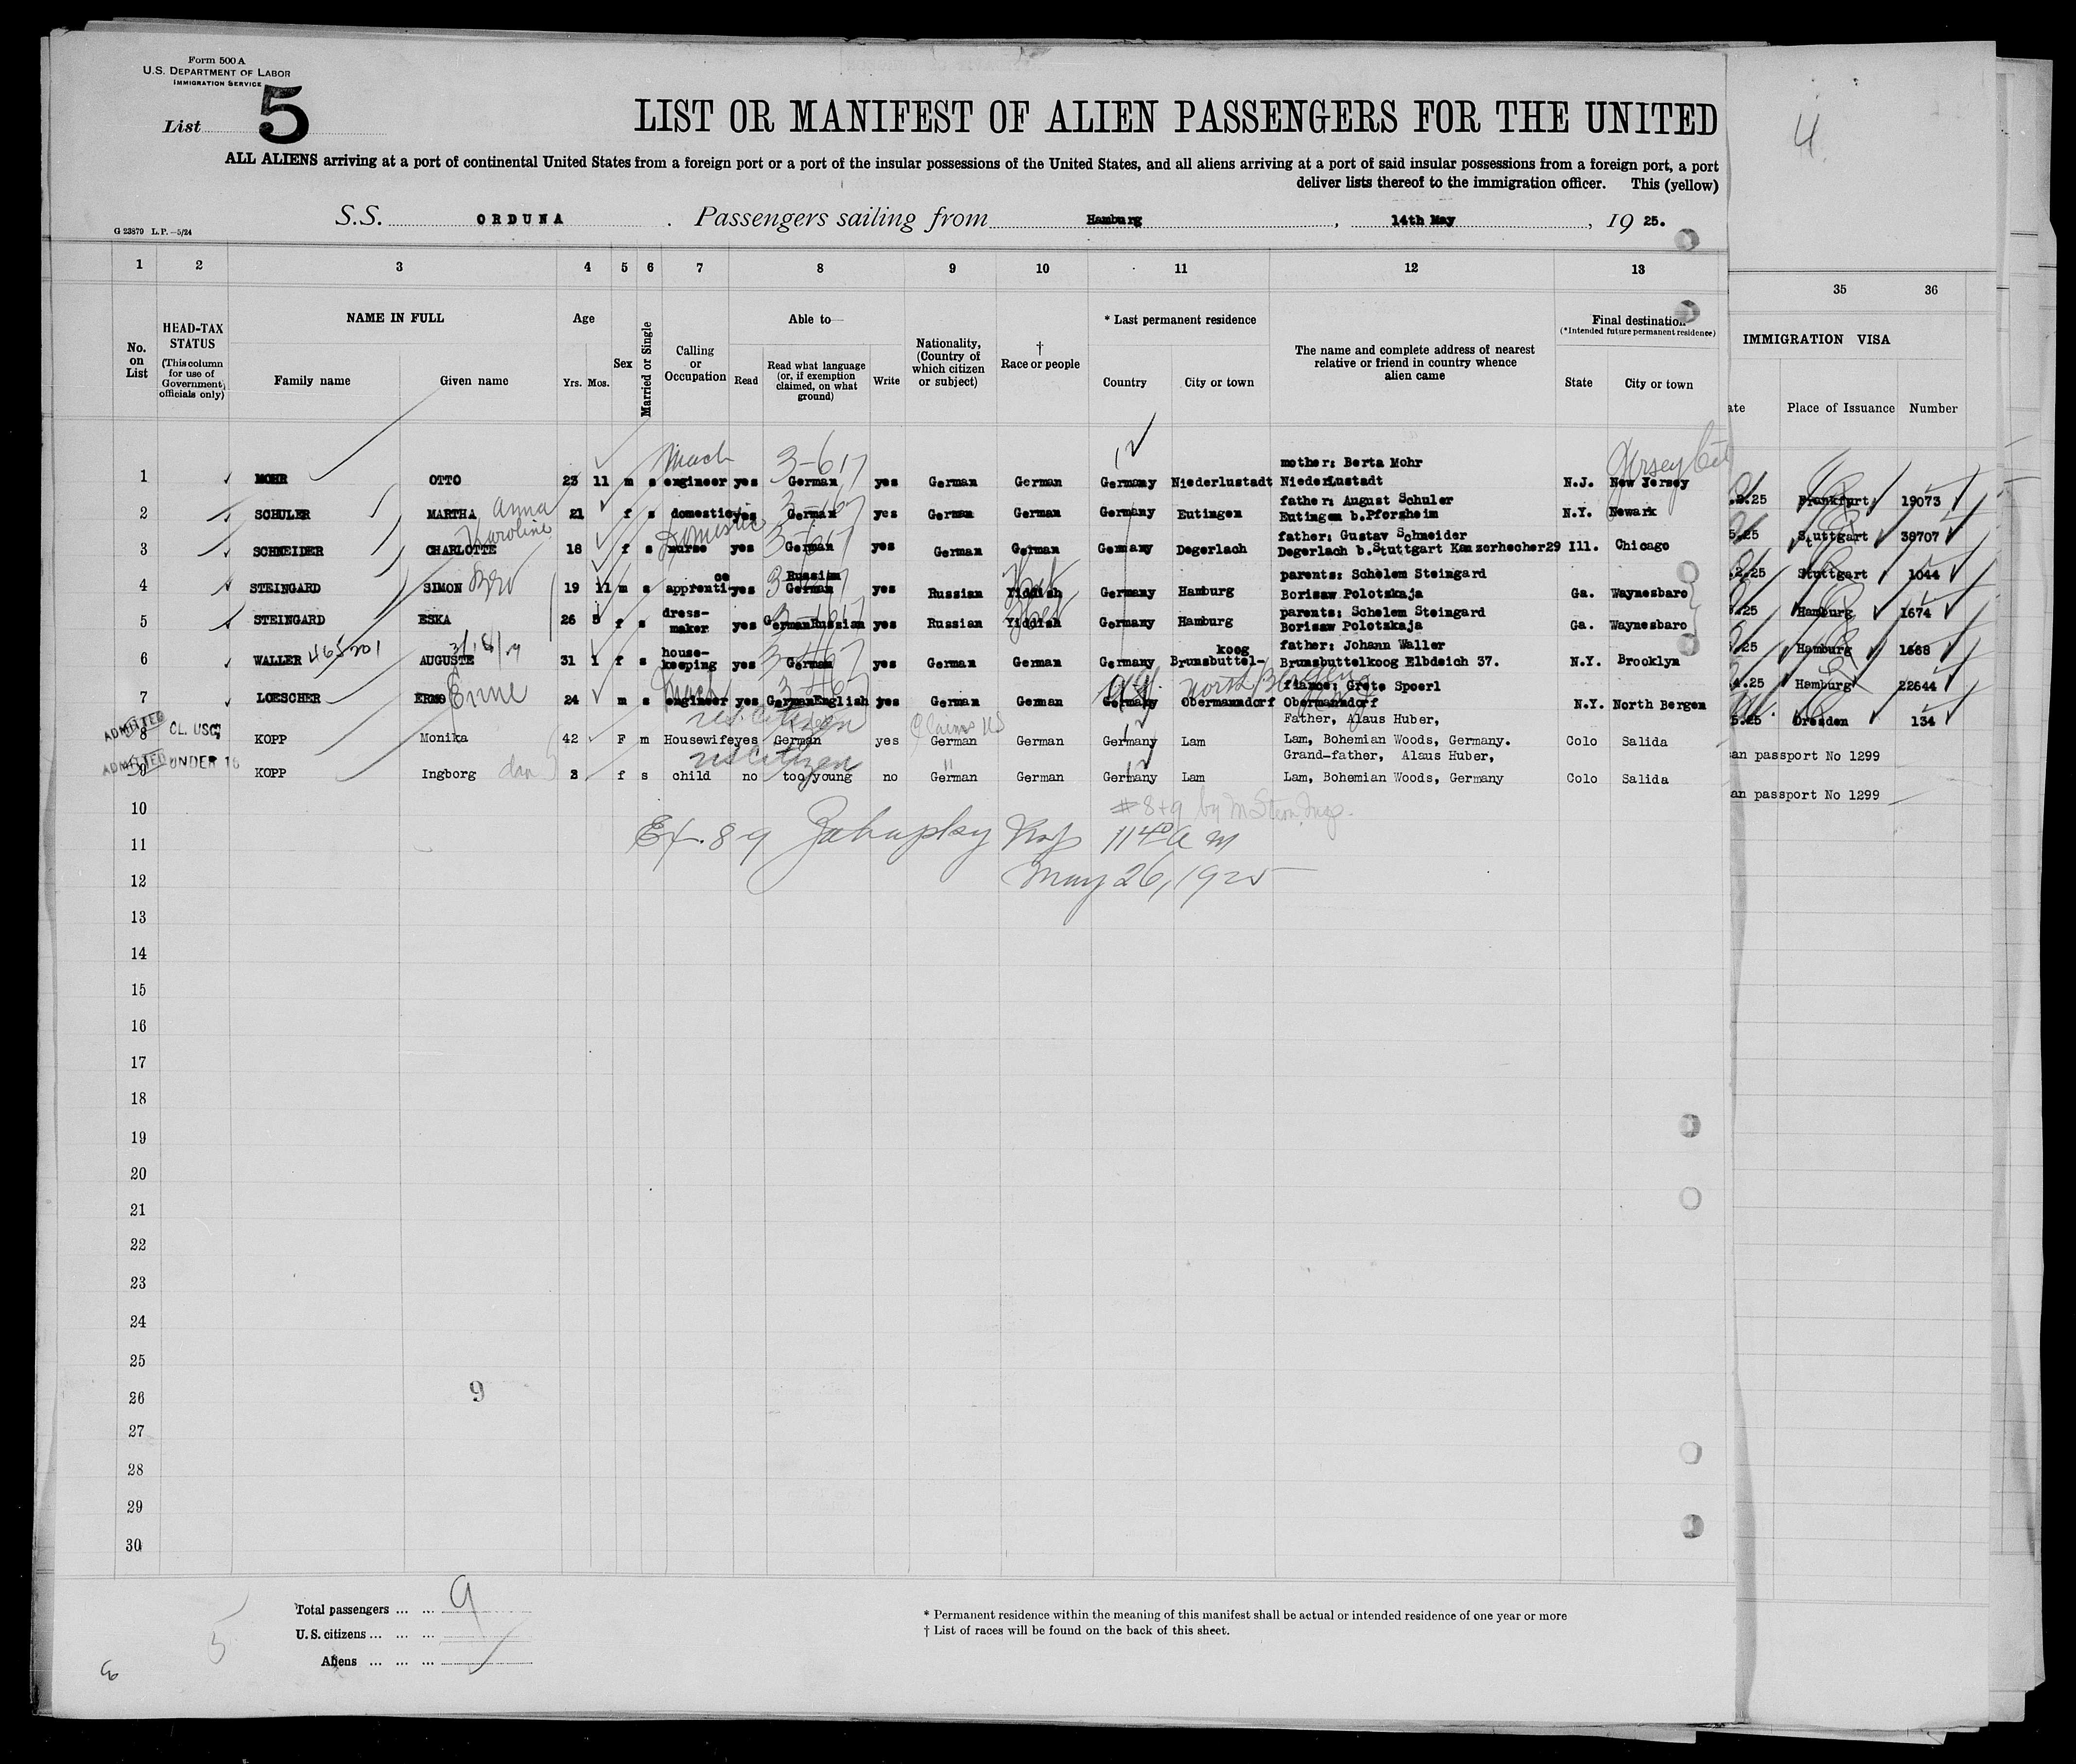 Form 500 A
U.S. DEPARTMENT OF LABOR
IMMIGRATION SERVICE
List 5
LIST OR MANIFEST OF ALIEN PASSENGERS FOR THE UNITED
4
ALL ALIENS arriving at a port of continental United States from a foreign port or a port of the insular possessions of the United States, and all aliens arriving at a port of said insular possessions from a foreign port, a port
deliver lists thereof to the immigration officer. This (yellow)
S.S. ORDUNA . Passengers sailing from Hamburg , 14th May , 19 25.
G 23879 L.P.—5/24
1 2 3 4 5 6 7 8 9 10 11 12 13 35 36
No. on List
HEAD-TAX STATUS (This column for use of Government officials only)
NAME IN FULL
Family name Given name
Age
Yrs. Mos.
Sex
Married or Single
Calling or Occupation
Able to—
Read Read what language (or, if exemption claimed, on what ground) Write
Nationality, (Country of which citizen or subject)
† Race or people
* Last permanent residence
Country City or town
The name and complete address of nearest relative or friend in country whence alien came
Final destination
(*Intended future permanent residence)
State City or town
IMMIGRATION VISA
ate Place of Issuance Number
Mach 3-617 Jersey
mother: Berta Mohr
1 MOHR OTTO 23 11 m s engineer yes German yes German German Germany Niederlustadt Niederlustadt N.J. New Jersey
Anna
father: August Schuler
2 SCHULER MARTHA 21 f s domestic yes German yes German German Germany Eutingen Eutingen b.Pforzheim N.Y. Newark
Karoline Domestic
father: Gustav Schneider
3 SCHNEIDER CHARLOTTE 18 f s nurse yes German yes German German Germany Degerlach Degerlach b.Stuttgart Kanzerhecher29 Ill. Chicago
parents: Schelem Steingard
4 STEINGARD SIMON Bro 19 11 m s apprentice yes Russian German yes Russian Yiddish Germany Hamburg Borisaw Polotzkaja Ga. Waynesbaro
parents: Schelem Steingard
5 STEINGARD ESKA 26 5 f s dress-maker yes German Russian yes Russian Yiddish Germany Hamburg Borisaw Polotzkaja Ga. Waynesbaro
father: Johann Waller
6 WALLER 465201 AUGUSTE 31 1 f s house-keeping yes German yes German German Germany Brunsbuttel-koog Brunsbuttelkoog Elbdeich 37. N.Y. Brooklyn
Erne Mach North Bergen
fiance: Grete Spoerl
7 LOESCHER ERNO 24 m s engineer yes German English yes German German Germany Obermanndorf Obermanndorf N.Y. North Bergen
ADMITTED CL. USC, US Citizen Claims US
Father, Alaus Huber,
8 KOPP Monika 42 F m Housewife yes German yes German German Germany Lam Lam, Bohemian Woods, Germany. Colo Salida
ADMITTED UNDER 16 US Citizen "
Grand-father, Alaus Huber,
9 KOPP Ingborg dau 3 f s child no too young no German German Germany Lam Lam, Bohemian Woods, Germany Colo Salida
.25 Frankfurt 19073
5.25 Stuttgart 38707
.25 Stuttgart 1044
.25 Hamburg 1674
.25 Hamburg 1668
.4.25 Hamburg 22644
5.25 Dresden 134
an passport No 1299
an passport No 1299
10
# 8+9 by Insp.
11 Ex. 8 9 Insp 11 40 a m
12 May 26, 1925
13
14
15
16
17
18
19
20
21
22
23
24
25
26 9
27
28
29
30
Total passengers ... ... 9
U. S. citizens ... ... ...
Aliens ... ... ...
5
* Permanent residence within the meaning of this manifest shall be actual or intended residence of one year or more
† List of races will be found on the back of this sheet.